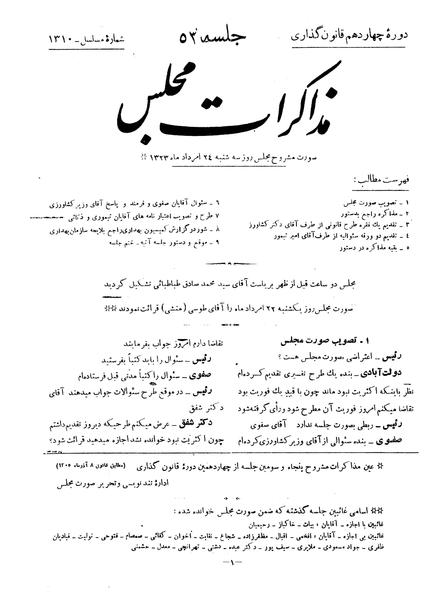 دورهٔ چهاردهم قانون گذاری
جلسهٔ ۵۳
شمارهٔ مسلسل - ۱۳۱۰
مذاکرات مجلس
صورت مشروح مجلس روز سه شنبه ۲۴ امرداد ماه ۱۳۲۳
فهرست مطالب:
۱ - تصویب صورت مجلس
۲ - مذاکره راجع بدستور
۳ - تقدیم یك فقره طرح قانونی از طرف آقای دکتر کشاورز
۴ - تقدیم دو ورقه سئوالیه از طرف آقای امیر تیمور
۵ - بقیه مذاکره در دستور
۶ - سئوال آقایان صفوی و فرمند و پاسخ آقای وزیر کشاورزی
۷ - طرح و تصویب اعتبار نامه های آقایان تیموری و ذکائی
۸ - شور در گزارش کمیسیون بهداری راجع بلایحه سازمان بهداری
۹ - موقع و دستور جلسه آتیه - ختم جلسه
مجلس دو ساعت قبل از ظهر بریاست آقای سید محمد صادق طباطبائی تشکیل گردید
صورت مجلس روز یکشنبه ۲۲ امرداد ماه را آقای طوسی (منشی) قرائت نمودند
۱ - تصویب صورت مجلس
رئیس - اعتراضی بصورت مجلس هست؟
دولت آبادی - بنده یك طرح تفسیری تقدیم کرده ام
نظر باینکه اکثریت نبود ماند چون با قید یك فوریت بود
تقاضا میکنم امروز فوریت آن مطرح شود و رأی گرفته شود
رئیس - ربطی بصورت جلسه ندارد آقای صفوی
صفوی - بنده سئوالی از آقای وزیر کشاورزی کرده ام
تقاضا دارم امروز جواب بفرمایند
رئیس - سئوال را باید کتباً بفرستید
صفوی - سئوال را کتباً مدتی قبل فرستاده ام
رئیس - در موقع طرح سئوالات جواب میدهند آقای
دکتر شفق
دکتر شفق - عرض میکنم طرحیکه دیروز تقدیم داشتم
چون اکثریت نبود خوانده نشد اجازه میدهید قرائت شود؟
عین مذاکرات مشروح پنجاه و سومین جلسه از چهاردهمین دورهٔ قانون گذاری (مطابق قانون ۸ آذر ماه ۱۳۰۵)
ادارهٔ تند نویسی و تحریر صورت مجلس
اسامی غائبین جلسه گذشته که ضمن صورت مجلس خوانده شده:
غائبین با اجازه - آقایان: بیات - خاکباز - رحیمیان
غائبین بی اجازه - آقایان: افخمی - اقبال - مظفرزاده - شجاع - نقابت - اخوان - کفائی - صمصام - فتوحی - تولیت - قبادیان
ظفری - جواد مسعودی - ملایری - سیف پور - دکتر عبده - دشتی - تهرانچی - معدل - حشمتی
- ۱ -